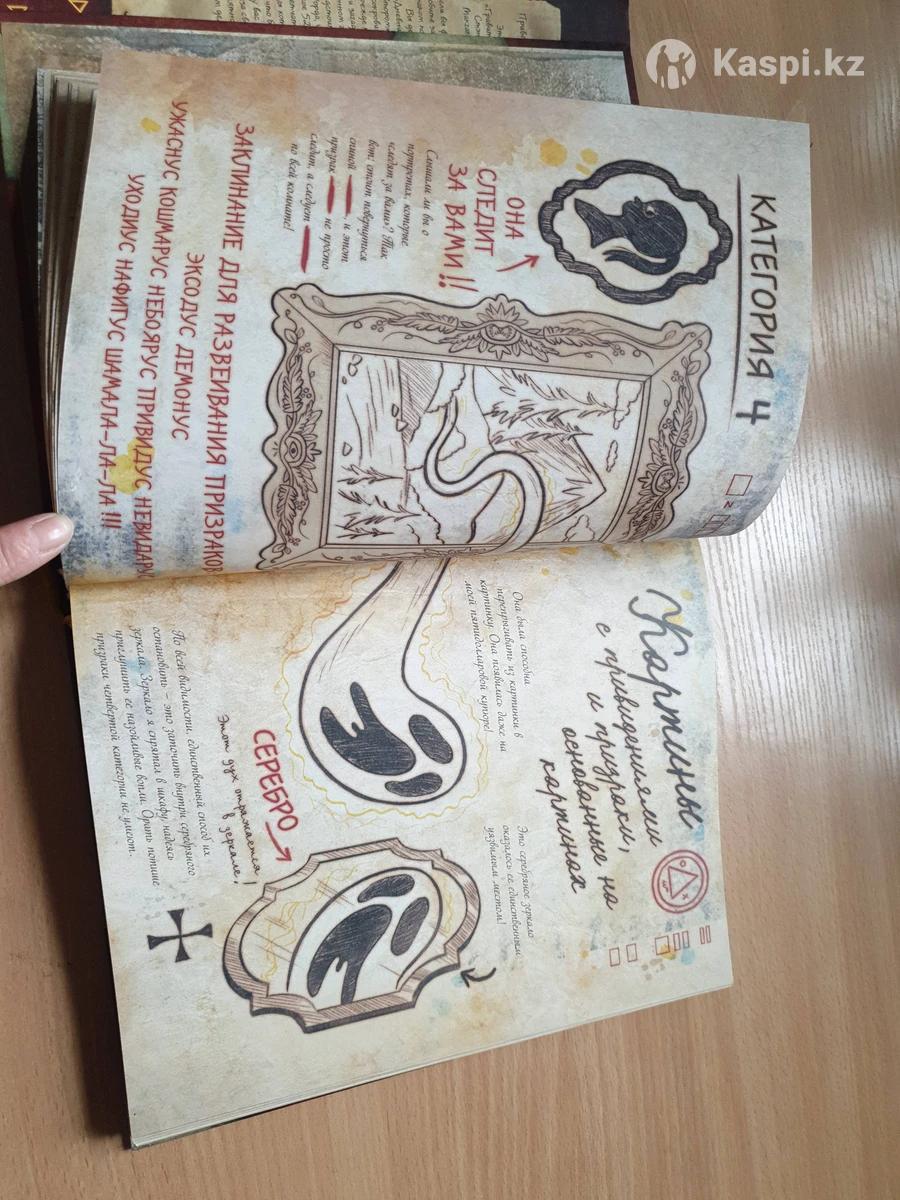 Kaspi.kz
КАТЕГОРИЯ 4
ОНА
СЛЕДИТ
ЗА ВАМИ!!
Слышали ли вы о
портретах, которые
«следят за вами»? Так
вот: стоит повернуться
спиной, и этот
призрак не просто
следит, а следует
по всей комнате!
ЗАКЛИНАНИЕ ДЛЯ РАЗВЕИВАНИЯ ПРИЗРАКОВ
ЭКСОДУС ДЕМОНУС
УЖАСНУС КОШМАРУС НЕБОЯРУС ПРИВИДУС НЕВИДАРУС
УХОДИУС НАФИГУС ШАМАЛА-ЛА-ЛА!!!
Картины
с привидениями
и призраки,
основанные на
картинах
Она была способна
перепрыгивать из картинки в
картинку. Она появилась даже на
моей пятидолларовой купюре!
Это серебряное зеркало
оказалось ее единственным
уязвимым местом!
СЕРЕБРО
Этот дух отражается
в зеркале!
По всей видимости, единственный способ их
остановить - это заточить внутри серебряного
зеркала. Зеркало я спрятал в шкафу, надеясь
приглушить ее назойливые вопли. Орать потише
призраки четвертой категории не умеют.